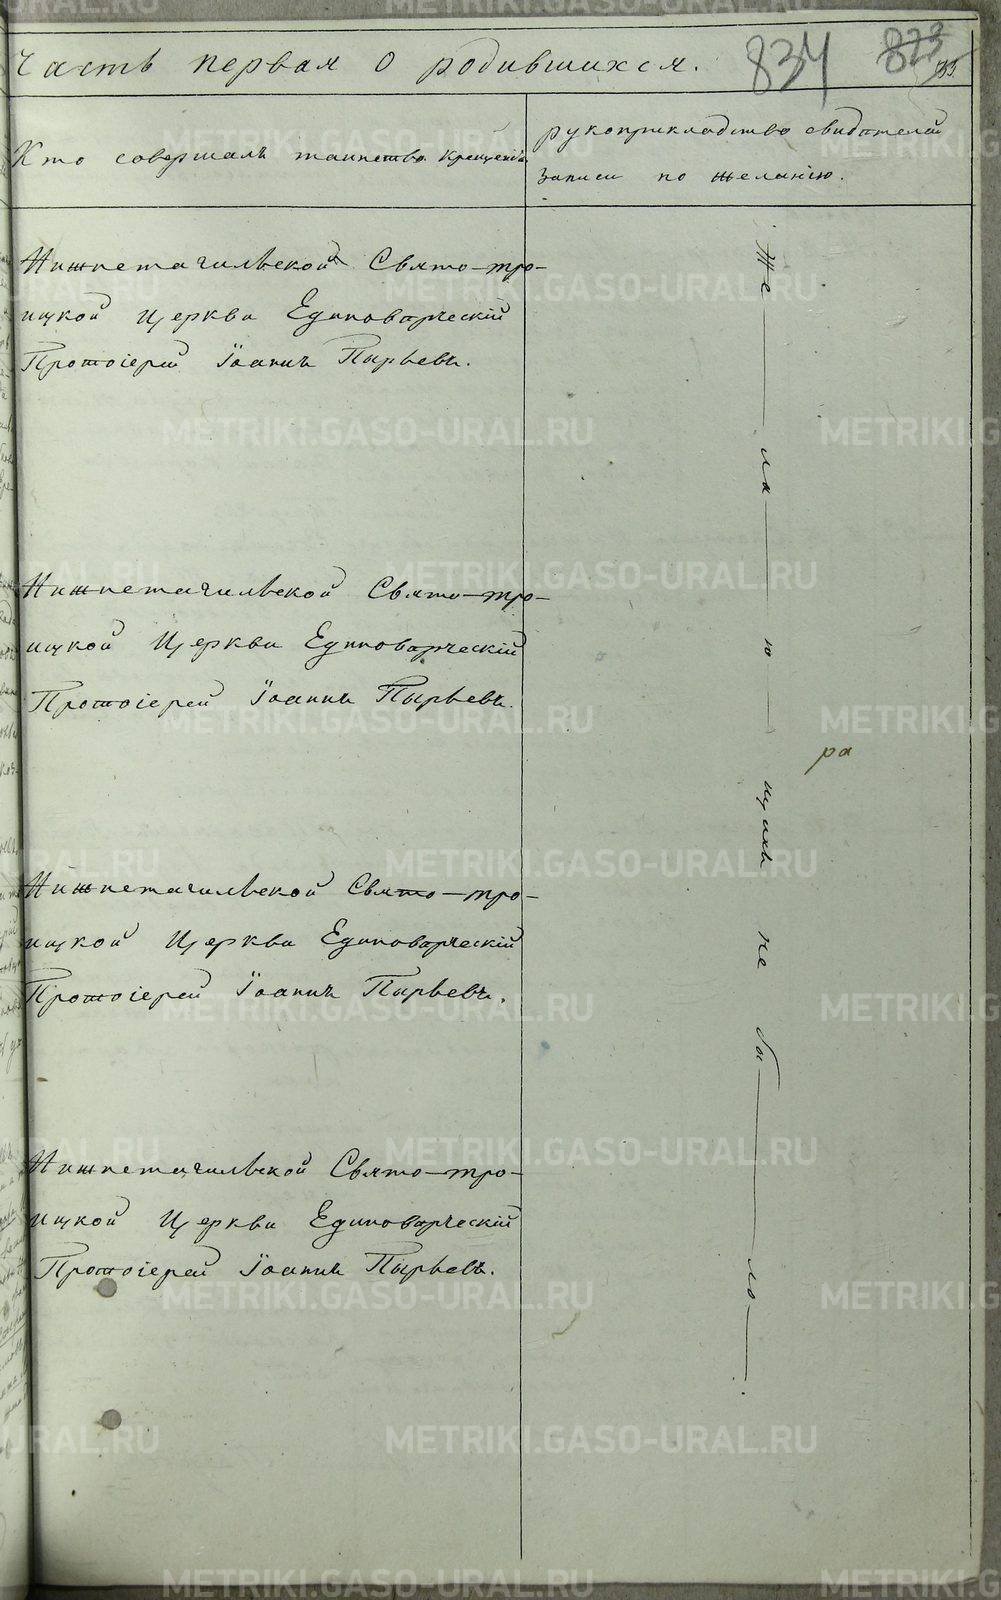 Часть первая о родившихся.
834
823
Кто совершалъ таинство крещенія.
рукоприкладство свидѣтелей
записи по желанію.
Нижнетагильской Свято-тро-
ицкой Церкви Единовѣрческій
Протоіерей Іоаннъ Пырьевъ.
Нижнетагильской Свято-тро-
ицкой Церкви Единовѣрческій
Протоіерей Іоаннъ Пырьевъ.
Нижнетагильской Свято-тро-
ицкой Церкви Единовѣрческій
Протоіерей Іоаннъ Пырьевъ.
Нижнетагильской Свято-тро-
ицкой Церкви Единовѣрческій
Протоіерей Іоаннъ Пырьевъ.
Же—ла—ю—щихъ не бы—ло—.
ра
METRIKI.GASO-URAL.RU